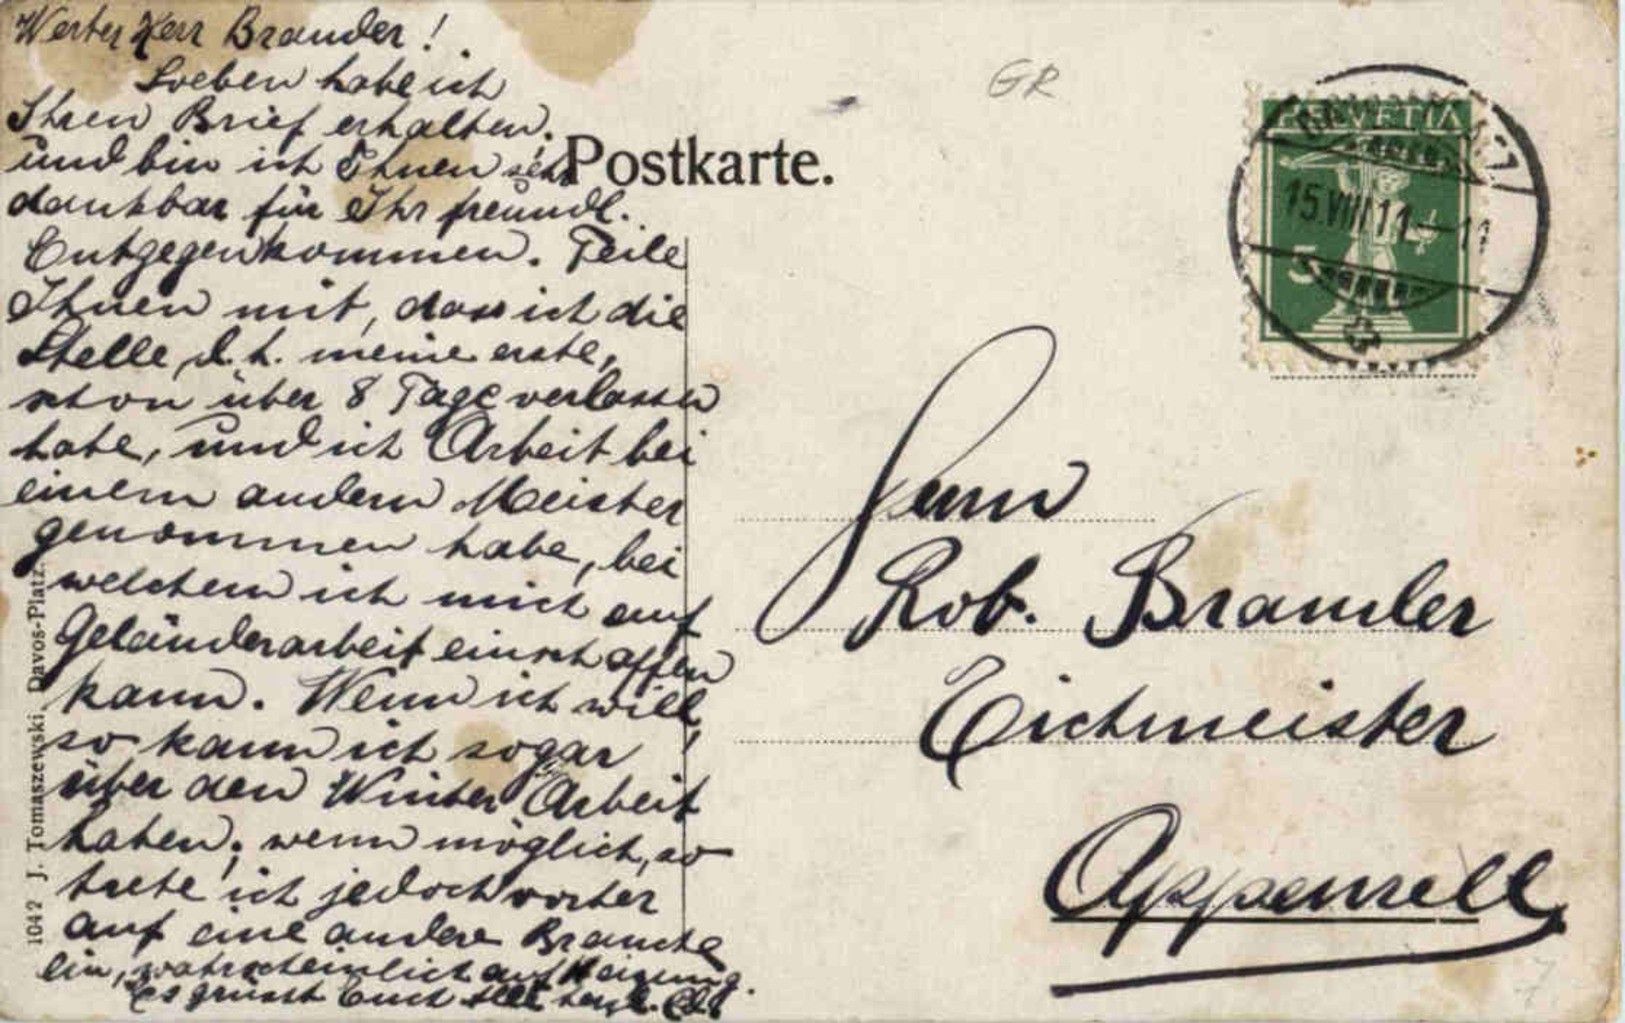 Werter Herr Brander!
Soeben habe ich
Ihren Brief erhalten,
und bin ich Ihnen sehr
dankbar für Ihr freundl.
Entgegenkommen. Teile
Ihnen mit, dass ich die
Stelle, d. h. meine erste,
schon über 8 Tage verlassen
habe, und ich Arbeit bei
einem andern Meister
genommen habe, bei
welchem ich mich auf
Geländerarbeit einschaffen
kann. Wenn ich will,
so kann ich sogar
über den Winter Arbeit
haben; wenn möglich, so
trete ich jedoch vorher
auf eine andere Branche
ein, wahrscheinlich auf Heizung.
Es grüsst Euch alle herzl.
Postkarte.
GR
HELVETIA
5
15.VIII.11
Herrn
Rob. Brander
Eichmeister
Appenzell
1042 J. Tomaszewski, Davos-Platz.